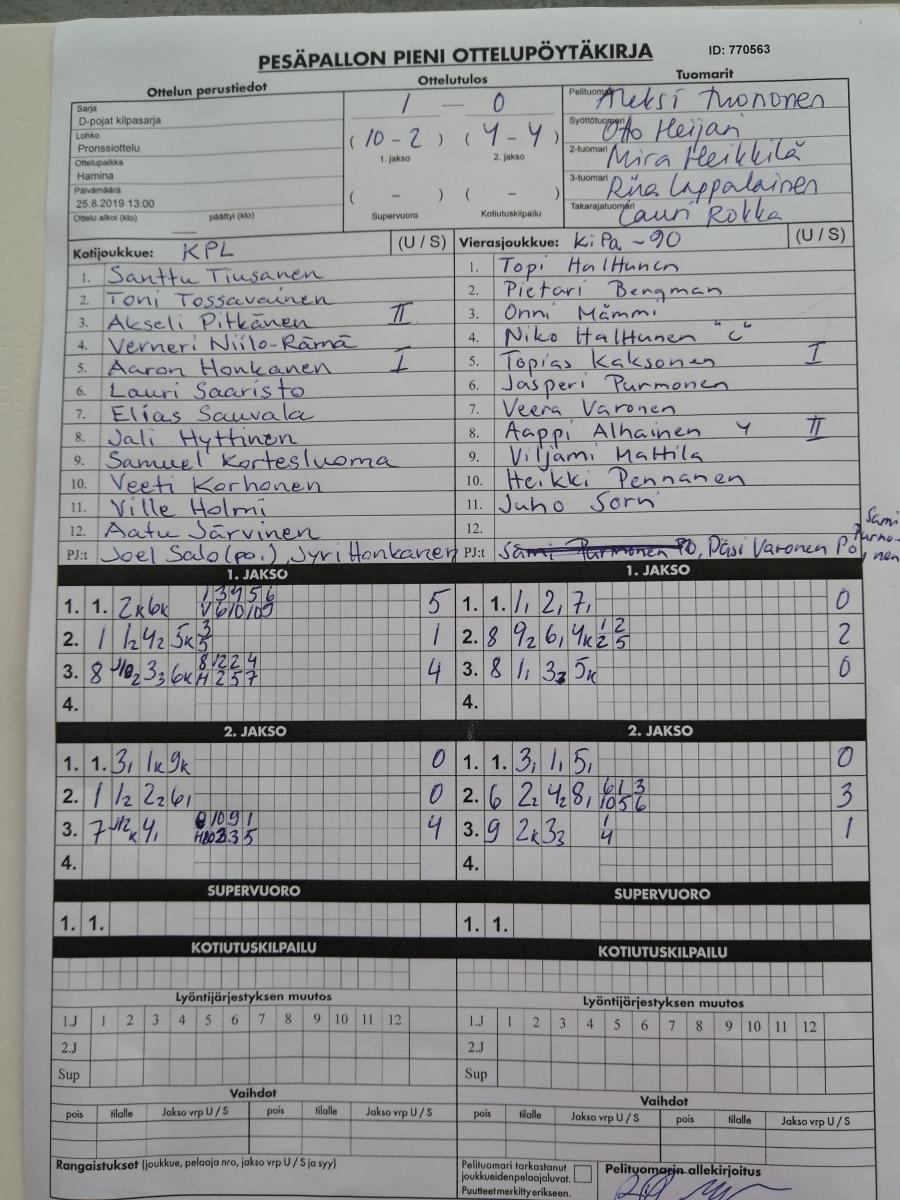 PESÄPALLON PIENI OTTELUPÖYTÄKIRJA
ID: 770563
Ottelun perustiedot
Ottelutulos
Tuomarit
Sarja
D-pojat kilpasarja
Lohko
Pronssiottelu
Ottelupaikka
Hamina
Päivämäärä
25.8.2019 13:00
Ottelu alkoi (klo) päättyi (klo)
1 — 0
( 10 - 2 ) ( 4 - 4 )
1. jakso 2. jakso
( - ) ( - )
Supervuoro Kotiutuskilpailu
Pelituomari Aleksi Tuononen
Syöttötuomari Otto Heijari
2-tuomari Mira Heikkilä
3-tuomari Riia Lappalainen
Takarajatuomari Lauri Rokka
Kotijoukkue: KPL (U / S)
1. Santtu Tiusanen
2. Toni Tossavainen
3. Akseli Pitkänen II
4. Verneri Niilo-Rämä
5. Aaron Honkanen I
6. Lauri Saaristo
7. Elias Sauvala
8. Jali Hyttinen
9. Samuel Kortesluoma
10. Veeti Korhonen
11. Ville Holmi
12. Aatu Järvinen
PJ:t Joel Salo (po.), Jyri Honkanen
Vierasjoukkue: KiPa -90 (U / S)
1. Topi Halttunen
2. Pietari Bergman
3. Onni Mämmi
4. Niko Halttunen "C"
5. Topias Kaksonen I
6. Jasperi Purmonen
7. Veera Varonen
8. Aappi Alhainen Y II
9. Viljami Mattila
10. Heikki Pennanen
11. Juho Sorri
12.
PJ:t Sami Purmonen PO, Päsi Varonen PO, Sami Purmonen
1. JAKSO
1. 1. 2k6k 5
2. 1 1₂4₂ 5k 3 5 1
3. 8 3₃ 6k 4
4.
1. JAKSO
1. 1. 1, 2, 7, 0
2. 8 9₂ 6, 4k 1 2 2 5 2
3. 8 1, 3₂ 5k 0
4.
2. JAKSO
1. 1. 3, 1k9k 0
2. 1 1₂ 2₂6, 0
3. 7 4, 4
4.
2. JAKSO
1. 1. 3, 1, 5, 0
2. 6 2₂ 4₂8, 6 1 3 10 5 6 3
3. 9 2k3₃ 1 4 1
4.
SUPERVUORO
1. 1.
SUPERVUORO
1. 1.
KOTIUTUSKILPAILU
KOTIUTUSKILPAILU
Lyöntijärjestyksen muutos
1.J 1 2 3 4 5 6 7 8 9 10 11 12
2.J
Sup
Lyöntijärjestyksen muutos
1.J 1 2 3 4 5 6 7 8 9 10 11 12
2.J
Sup
Vaihdot
pois tilalle Jakso vrp U / S pois tilalle Jakso vrp U / S
Vaihdot
pois tilalle Jakso vrp U / S pois tilalle Jakso vrp U / S
Rangaistukset (joukkue, pelaaja nro, jakso vrp U / S ja syy)
Pelituomari tarkastanut
joukkueidenpelaajaluvat.
Puutteet merkitty erikseen.
Pelituomarin allekirjoitus